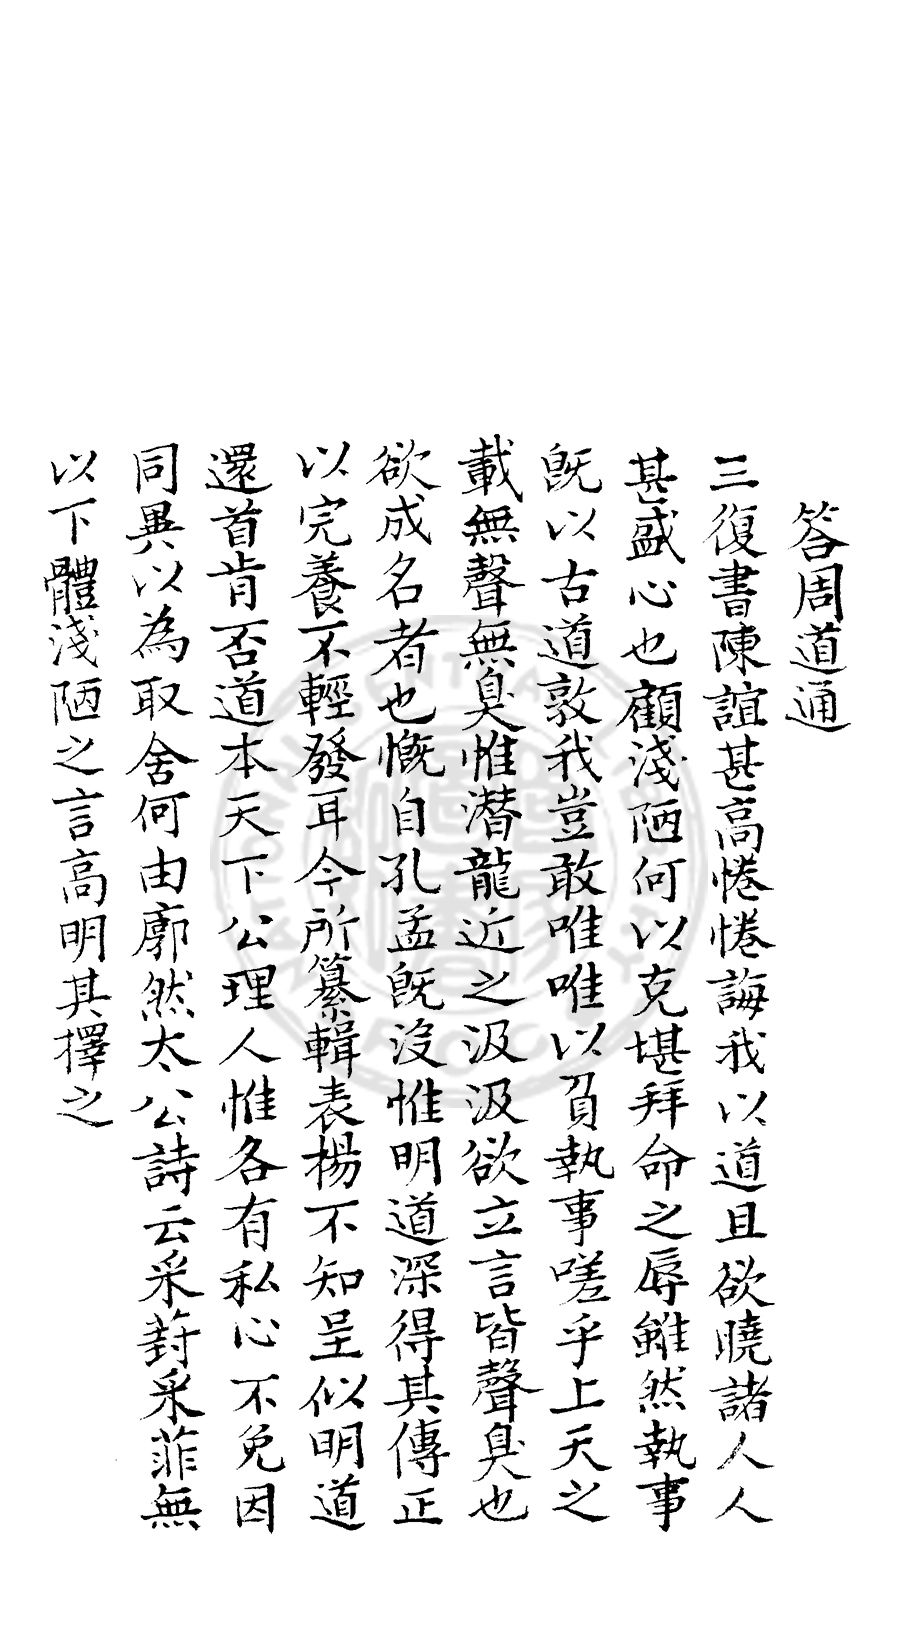 答周道通
三復書陳誼甚高惓惓誨我以道且欲曉諸人人
甚盛心也顧淺陋何以克堪拜命之辱雖然執事
既以古道敦我豈敢唯唯以負執事嗟乎上天之
載無聲無臭惟潛龍近之汲汲欲立言皆聲臭也
欲成名者也慨自孔孟既沒惟明道深得其傳正
以完養不輕發耳今所纂輯表楊不知呈似明道
還首肯否道本天下公理人惟各有私心不免因
同異以為取舍何由廓然太公詩云采葑采菲無
以下體淺陋之言高明其擇之